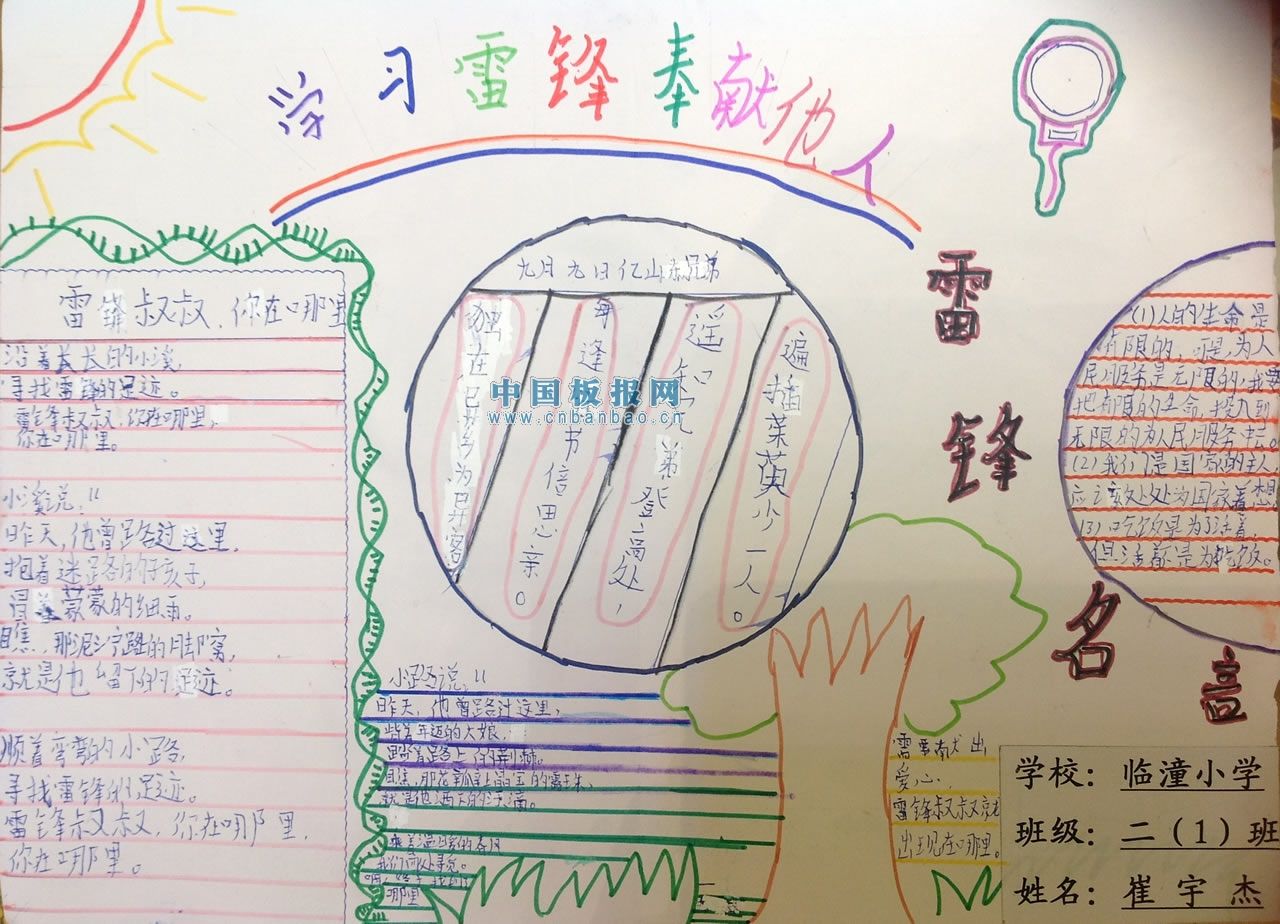 学习雷锋奉献他人
雷锋叔叔,你在哪里
沿着长长的小溪,
寻找雷锋的足迹。
雷锋叔叔,你在哪里,
你在哪里。
小溪说:"
昨天,他曾路过这里,
抱着迷路的孩子,
冒着蒙蒙的细雨。
瞧,那泥泞路上的脚窝,
就是他留下的足迹。
顺着弯弯的小路,
寻找雷锋的足迹。
雷锋叔叔,你在哪里,
你在哪里。
九月九日亿山东兄弟
独在异乡为异客
每逢佳节倍思亲。
遥知兄弟登高处,
遍插茱萸少一人。
中国板报网
www.cnbanbao.cn
小路说:"
昨天,他曾路过这里,
背着年迈的大娘,
踏着路上的荆棘。
瞧,那花瓣上晶莹的露珠,
就是他洒下的汗滴。
乘着温暖的春风
我们四处寻觅。
哪里
献出
爱心
雷锋叔叔就
出现在哪里。
雷锋名言
(1)人的生命是
有限的,可是,为人
民服务是无限的,我要
把有限的生命,投入到
无限的为人民服务中去。
(2)我们是国家的主人
应该处处为国家着想
(3)吃饭是为了活着,
但活着不是为了吃饭。
学校:临潼小学
班级:二(1)班
姓名:崔宇杰